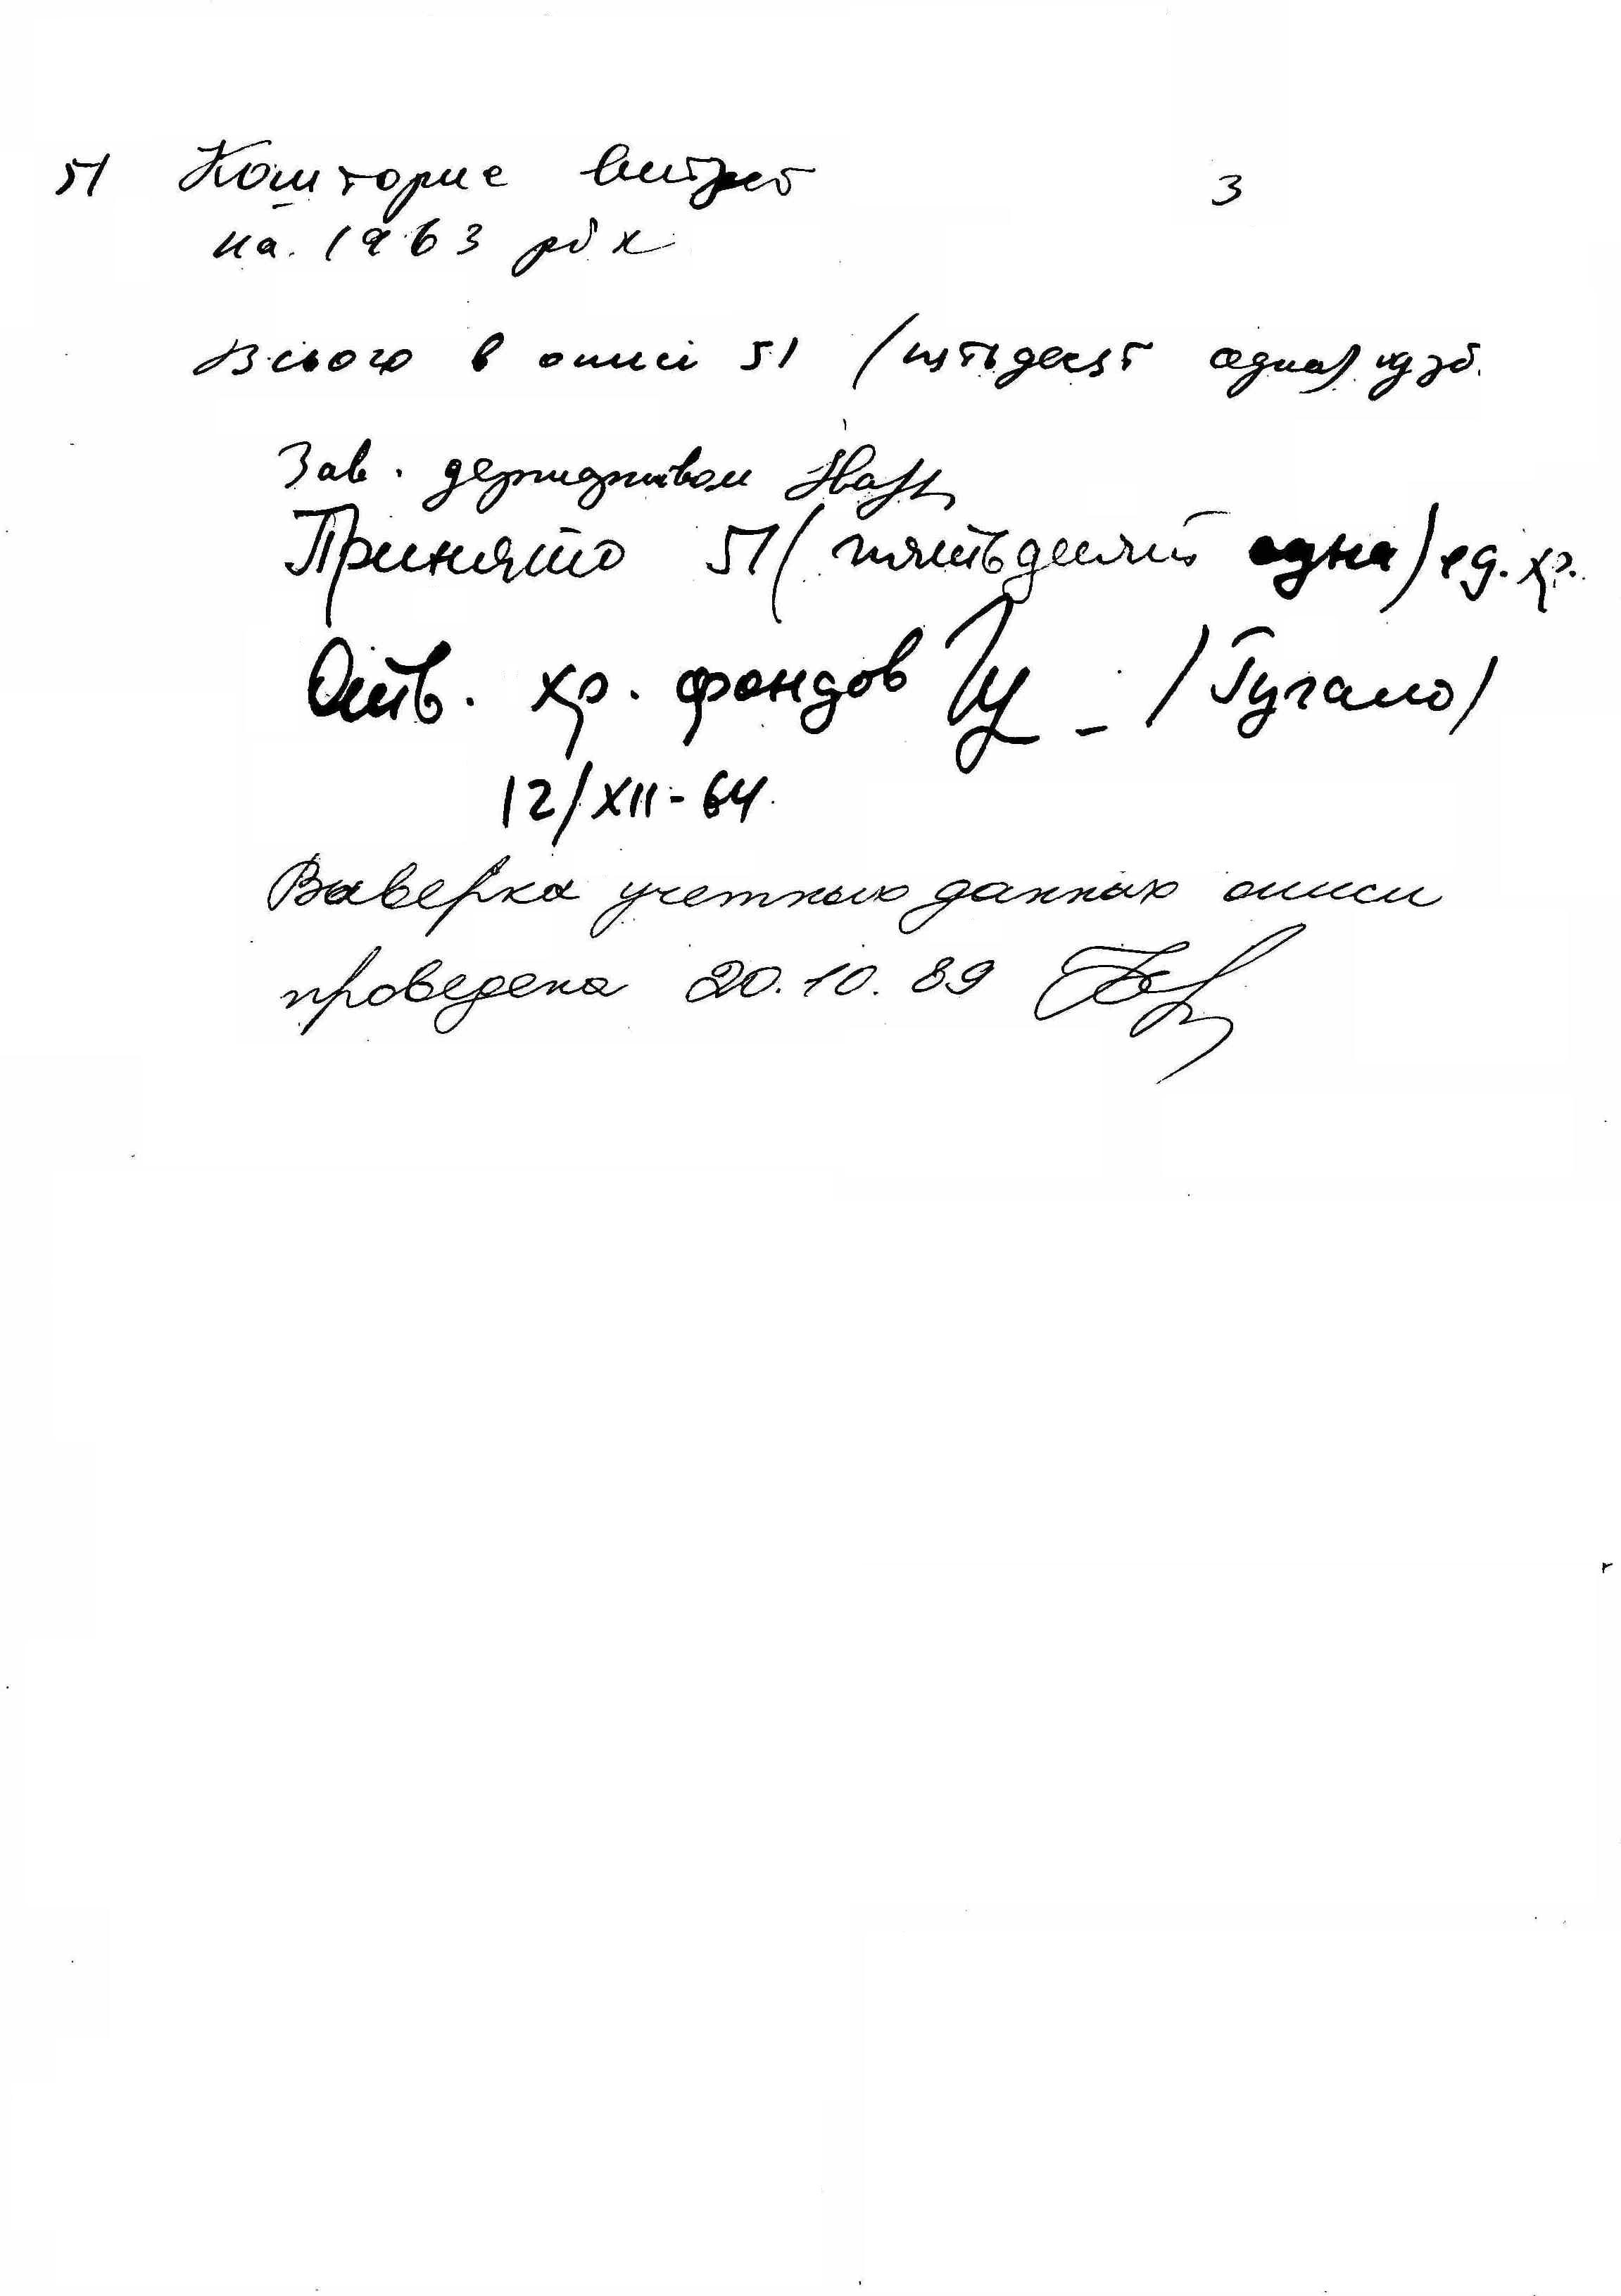 51 Кошторис витрат 3
на 1963 рік
Всього в описі 51 (пятьдесят одна)
Зав. держархівом
Принято 51 (пятьдесят одна) ед. хр.
Отв. хр. фондов
12/XII-64
Выверка учетных данных описи
проведена 20.10.89